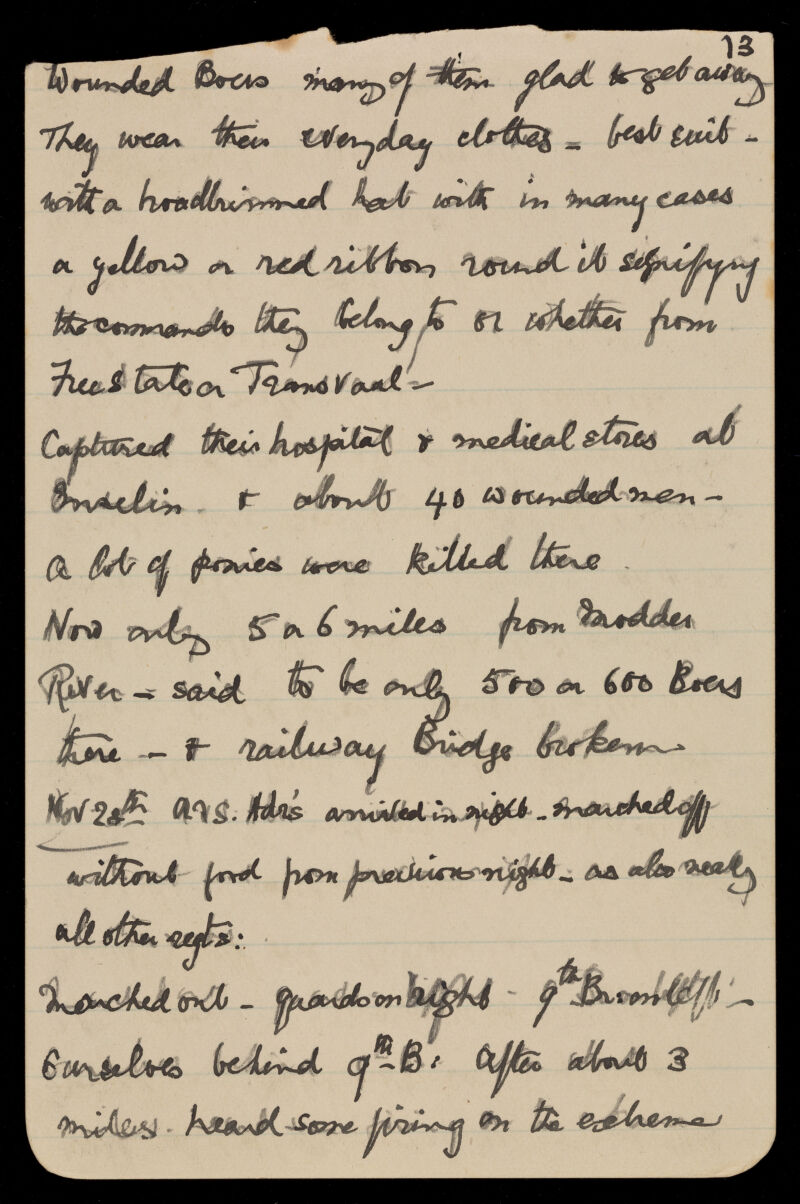 13
Wounded Boers many of them glad to get away
They wear their everyday clothes = best suit -
with a broadbrimmed hat with in many cases
a yellow or red ribbon round it signifying
the commando they belong to or whether from
Free State or Transvaal -
Captured their hospital & medical stores at
Enselin. & about 40 wounded men -
A lot of ponies were killed there.
Now only 5 or 6 miles from Modder
River - said to be only 500 or 600 Boers
there - & railway Bridge broken
Nov 28th A & S. Hdrs arrived in night - marched off
without food from previous night - as also nearly
all other regts:
Marched out - guards on right - 9th B: on left -
Ourselves behind 9th B: After about 3
miles heard some firing on the extreme